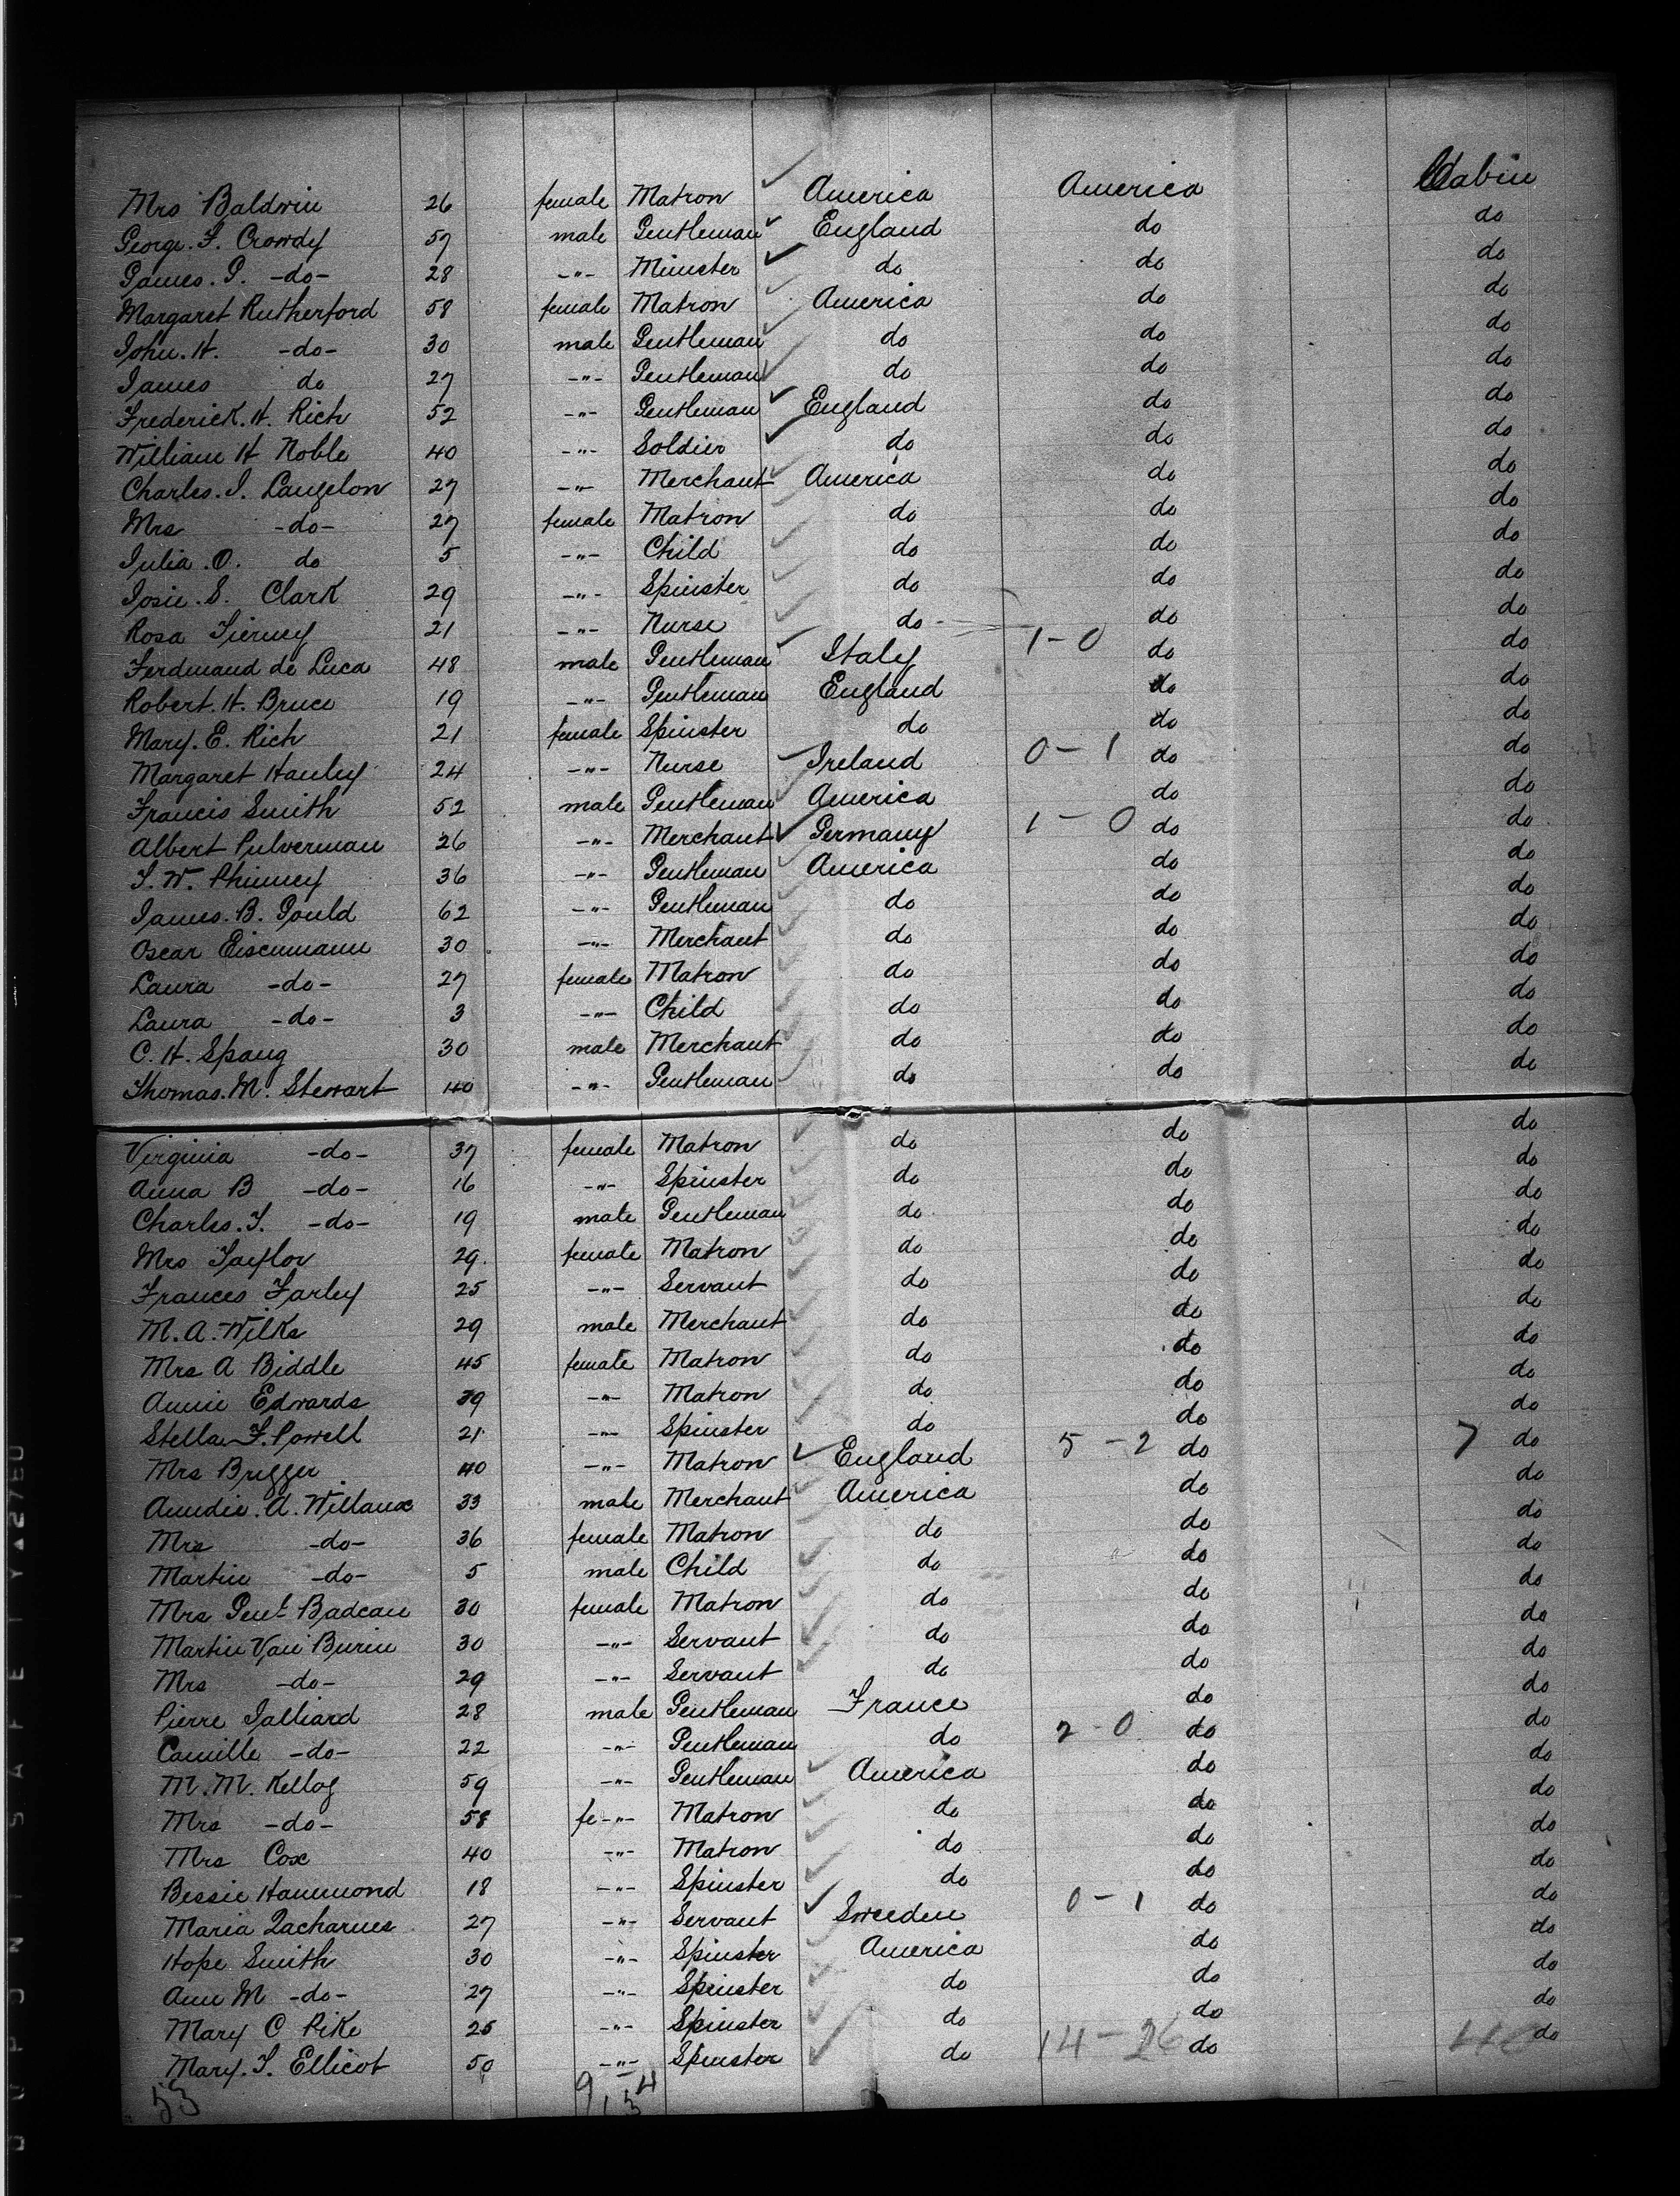 Mrs Baldwin 26 female Matron America America Cabin
George. F. Crowdy 57 male Gentleman England do do
James. G. -do- 28 -"- Minister do do do
Margaret Rutherford 58 female Matron America do do
John. H. -do- 30 male Gentleman do do do
James do 27 -"- Gentleman do do do
Frederick. H. Rich 52 -"- Gentleman England do do
William H Noble 40 -"- Soldier do do do
Charles. I. Langelon 27 -"- Merchant America do do
Mrs -do- 27 female Matron do do do
Julia. O. do 5 -"- Child do do do
Josie. S. Clark 29 -"- Spinster do do do
Rosa Tierney 21 -"- Nurse do do do
Ferdinand de Luca 48 male Gentleman Italy 1-0 do do
Robert. H. Bruce 19 -"- Gentleman England do do
Mary. E. Rich 21 female Spinster do do do
Margaret Hanley 24 -"- Nurse Ireland 0-1 do do
Francis Smith 52 male Gentleman America do do
Albert Pulverman 26 -"- Merchant Germany 1-0 do do
T. W. Phinney 36 -"- Gentleman America do do
James. B. Gould 62 -"- Gentleman do do do
Oscar Eisenmann 30 -"- Merchant do do do
Laura -do- 27 female Matron do do do
Laura -do- 3 -"- Child do do do
C. H. Spang 30 male Merchant do do do
Thomas. M. Stewart 40 -"- Gentleman do do do
Virginia -do- 37 female Matron do do do
Anna B -do- 16 -"- Spinster do do do
Charles. T. -do- 19 male Gentleman do do do
Mrs Taylor 29 female Matron do do do
Frances Farley 25 -"- Servant do do do
M. A. Wilks 29 male Merchant do do do
Mrs A Biddle 45 female Matron do do do
Annie Edwards 39 -"- Matron do do do
Stella F. Powell 21 -"- Spinster do do do
Mrs Brigger 40 -"- Matron England 5-2 do 7 do
A. Willaux 33 male Merchant America do do
Mrs -do- 36 female Matron do do do
Martin -do- 5 male Child do do do
Mrs Genl Badeau 30 female Matron do do do
Martin Van Buren 30 -"- Servant do do do
Mrs -do- 29 -"- Servant do do do
Pierre Jalliard 28 male Gentleman France do do
Camille -do- 22 -"- Gentleman do 2-0 do do
M. M. Kellog 59 -"- Gentleman America do do
Mrs -do- 58 fe-"- Matron do do do
Mrs Cox 40 -"- Matron do do do
Bessie Hammond 18 -"- Spinster do do do
Maria Zacharnes 27 -"- Servant Sweeden 0-1 do do
Hope Smith 30 -"- Spinster America do do
Ann M -do- 27 -"- Spinster do do do
Mary C Pike 25 -"- Spinster do do do
Mary. T. Ellicot 50 -"- Spinster do 14-26 do 40 do
53